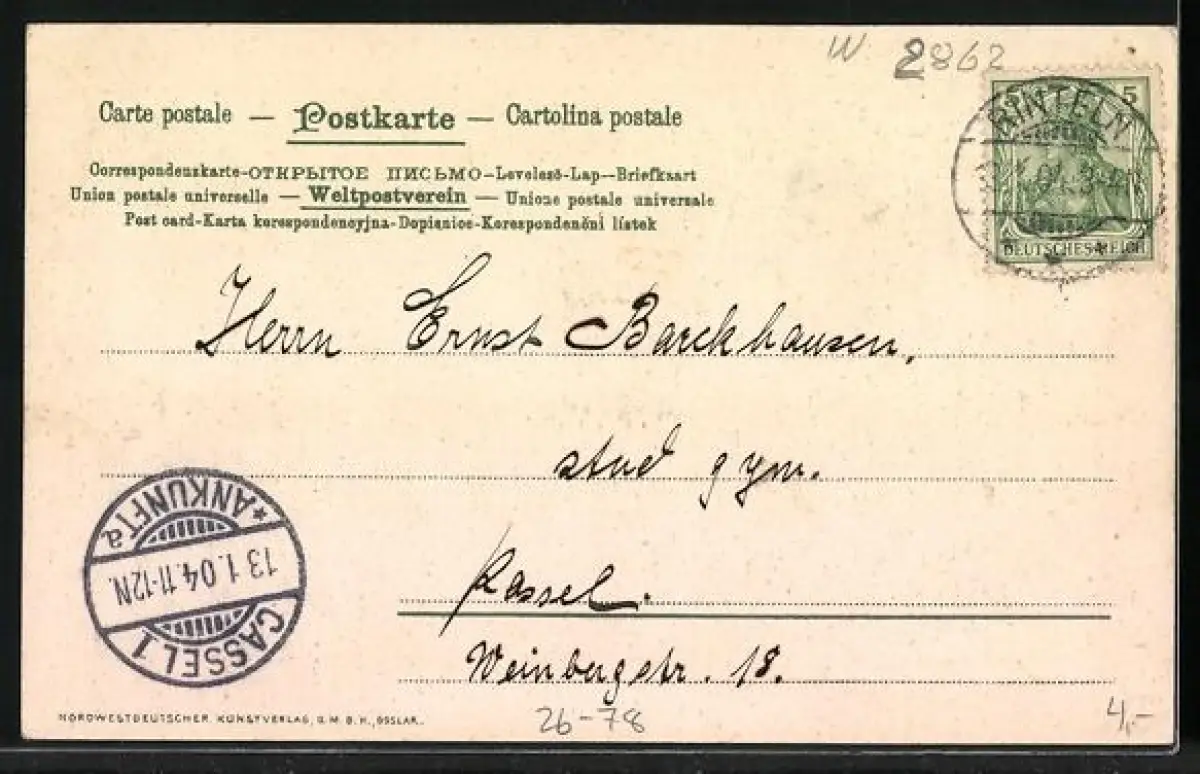 W. 2862
Carte postale — Postkarte — Cartolina postale
Correspondenzkarte-ОТКРЫТОЕ ПИСЬМО-Levelező-Lap--Briefkaart
Union postale universelle — Weltpostverein — Unione postale universale
Post card-Karta korespondencyjna-Dopisnice-Korespondenční lístek
5
RINTELN
04. 3-4
DEUTSCHES REICH
Herrn Ernst Barckhausen,
stud gym.
Kassel.
Weinbergstr. 18.
*ANKUNFT a
13 1.04.11-12N.
CASSEL 1
NORDWESTDEUTSCHER KUNSTVERLAG, G.M.B.H., GOSLAR.
26-78
4,-